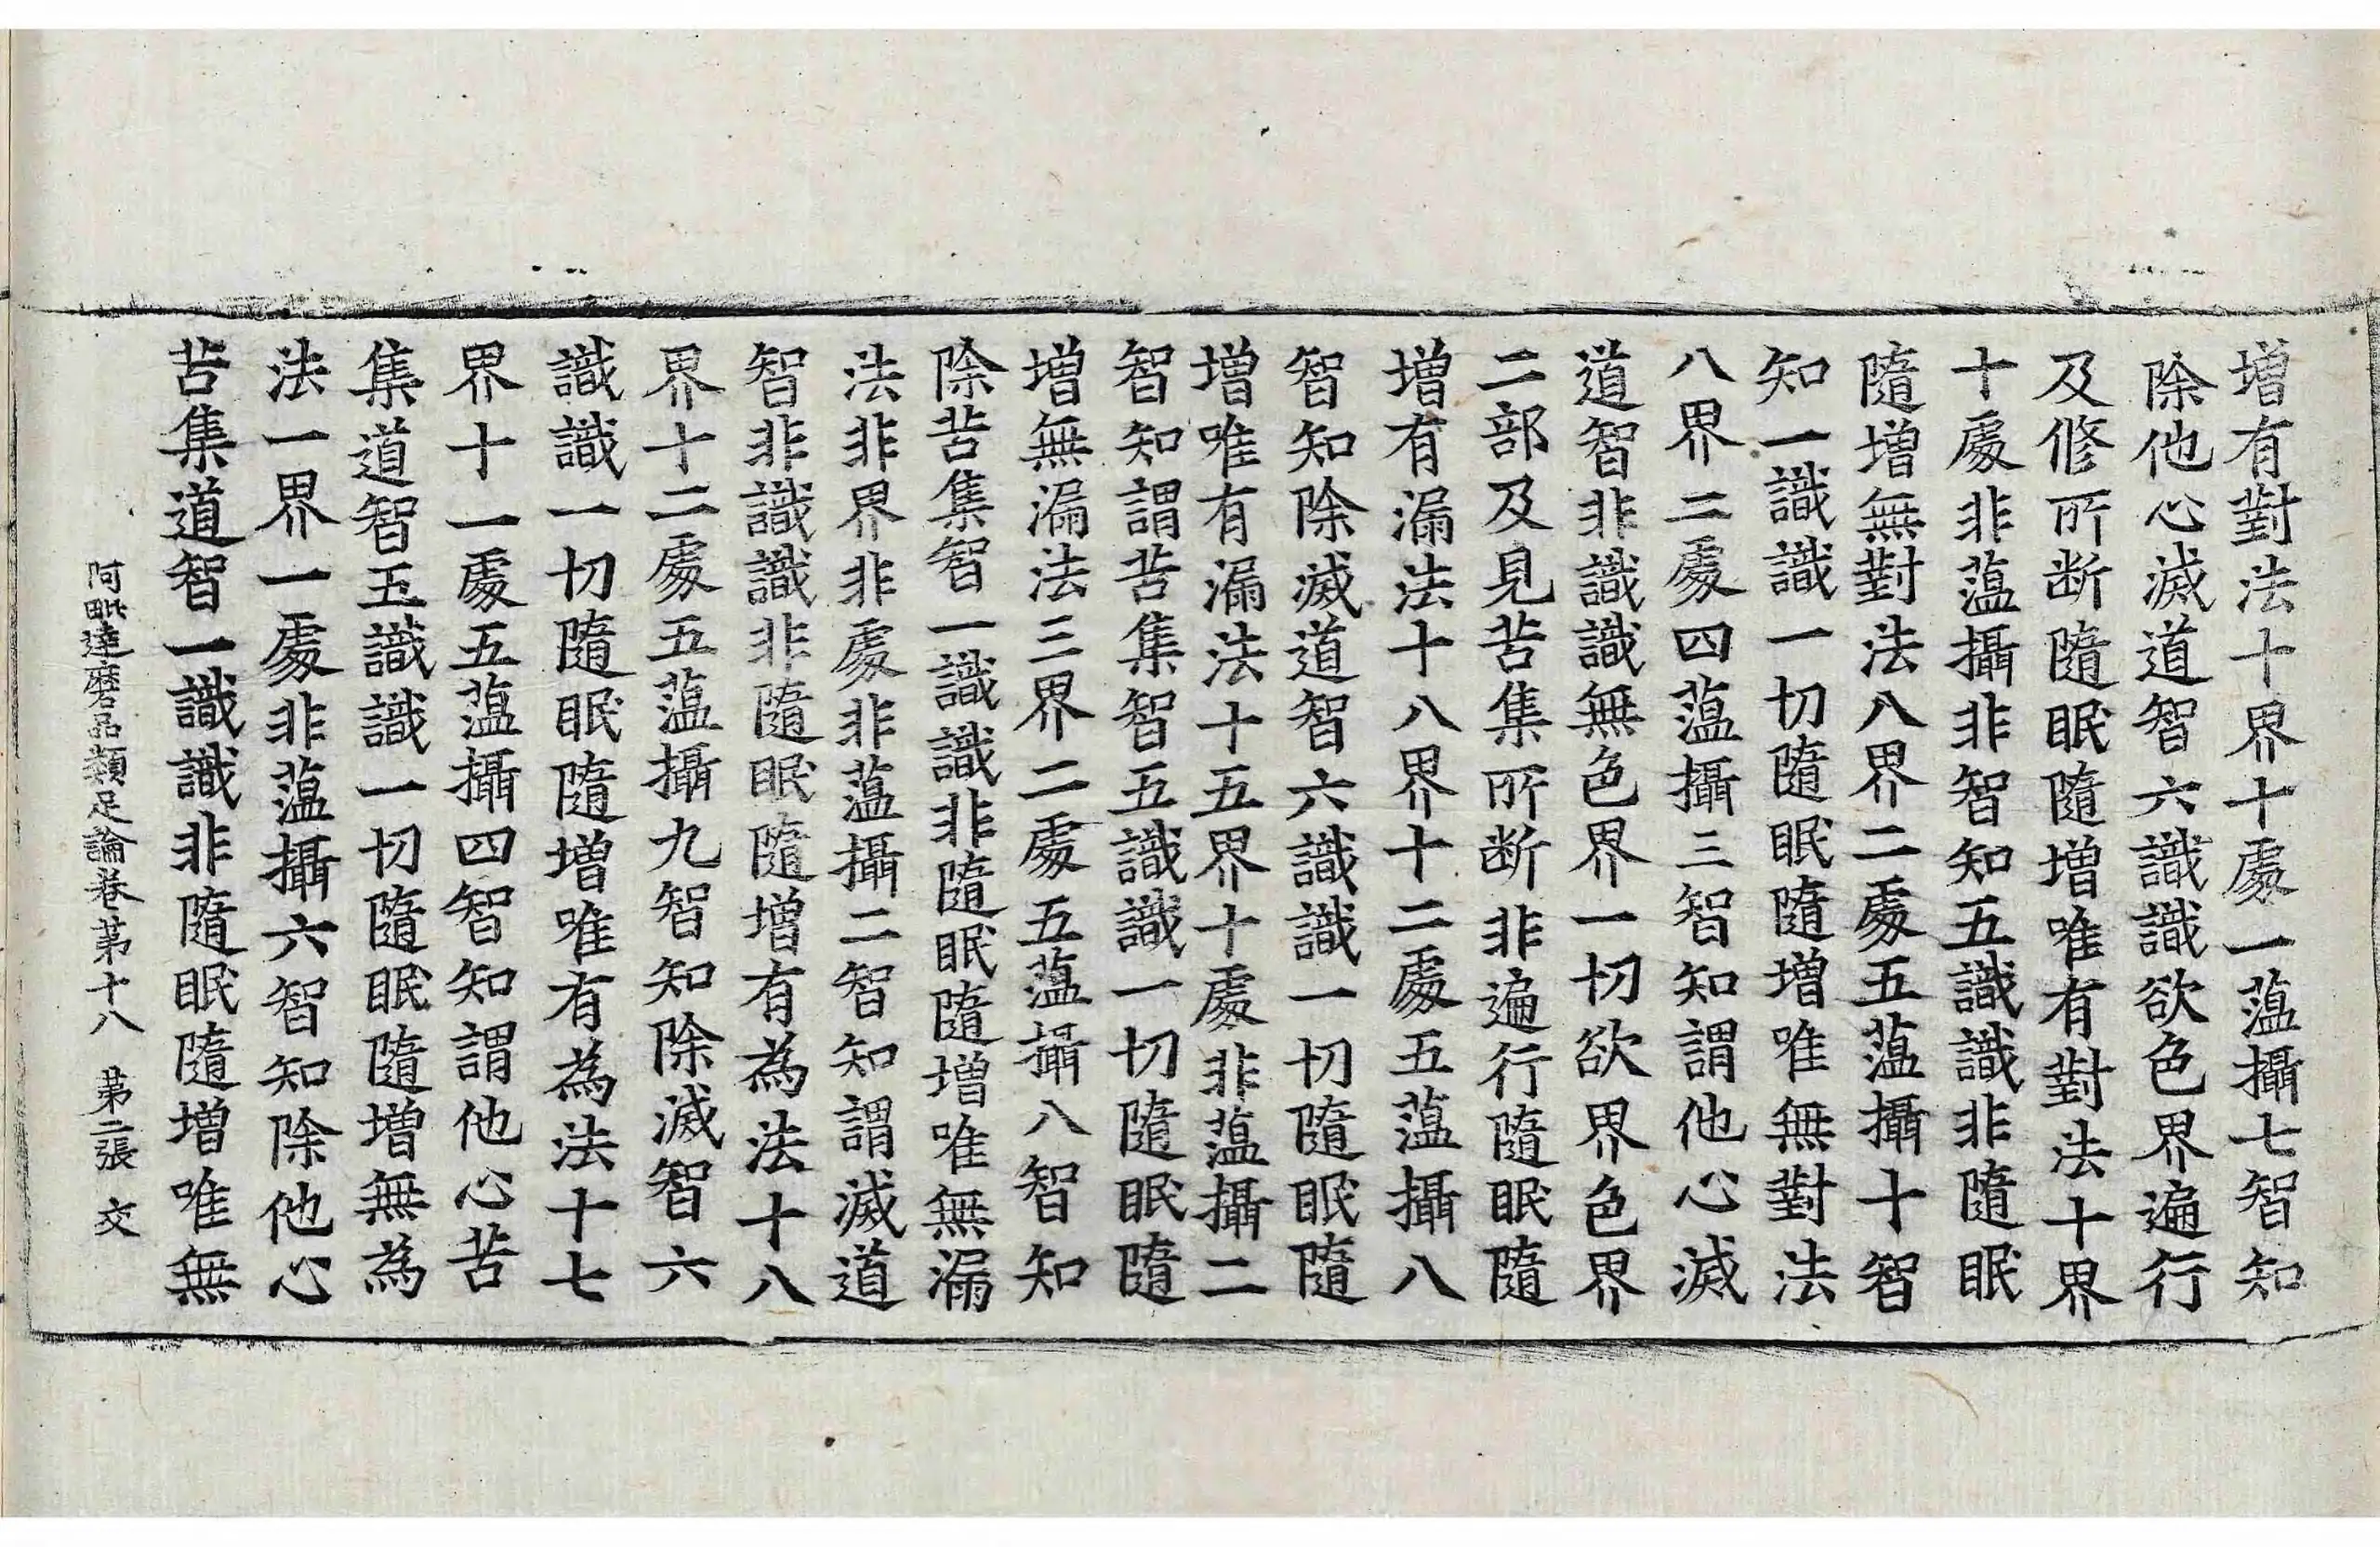 增有對法十界十處一蘊攝七智知
除他心滅道智六識識欲色界遍行
及修所斷隨眠隨增唯有對法十界
十處非蘊攝非智知五識識非隨眠
隨增無對法八界二處五蘊攝十智
知一識識一切隨眠隨增唯無對法
八界二處四蘊攝三智知謂他心滅
道智非識識無色界一切欲界色界
二部及見苦集所斷非遍行隨眠隨
增有漏法十八界十二處五蘊攝八
智知除滅道智六識識一切隨眠隨
增唯有漏法十五界十處非蘊攝二
智知謂苦集智五識識一切隨眠隨
增無漏法三界二處五蘊攝八智知
除苦集智一識識非隨眠隨增唯無漏
法非界非處非蘊攝二智知謂滅道
智非識識非隨眠隨增有為法十八
界十二處五蘊攝九智知除滅智六
識識一切隨眠隨增唯有為法十七
界十一處五蘊攝四智知謂他心苦
集道智五識識一切隨眠隨增無為
法一界一處非蘊攝六智知除他心
苦集道智一識識非隨眠隨增唯無
阿毗達磨品類足論卷第十八 第二張 文